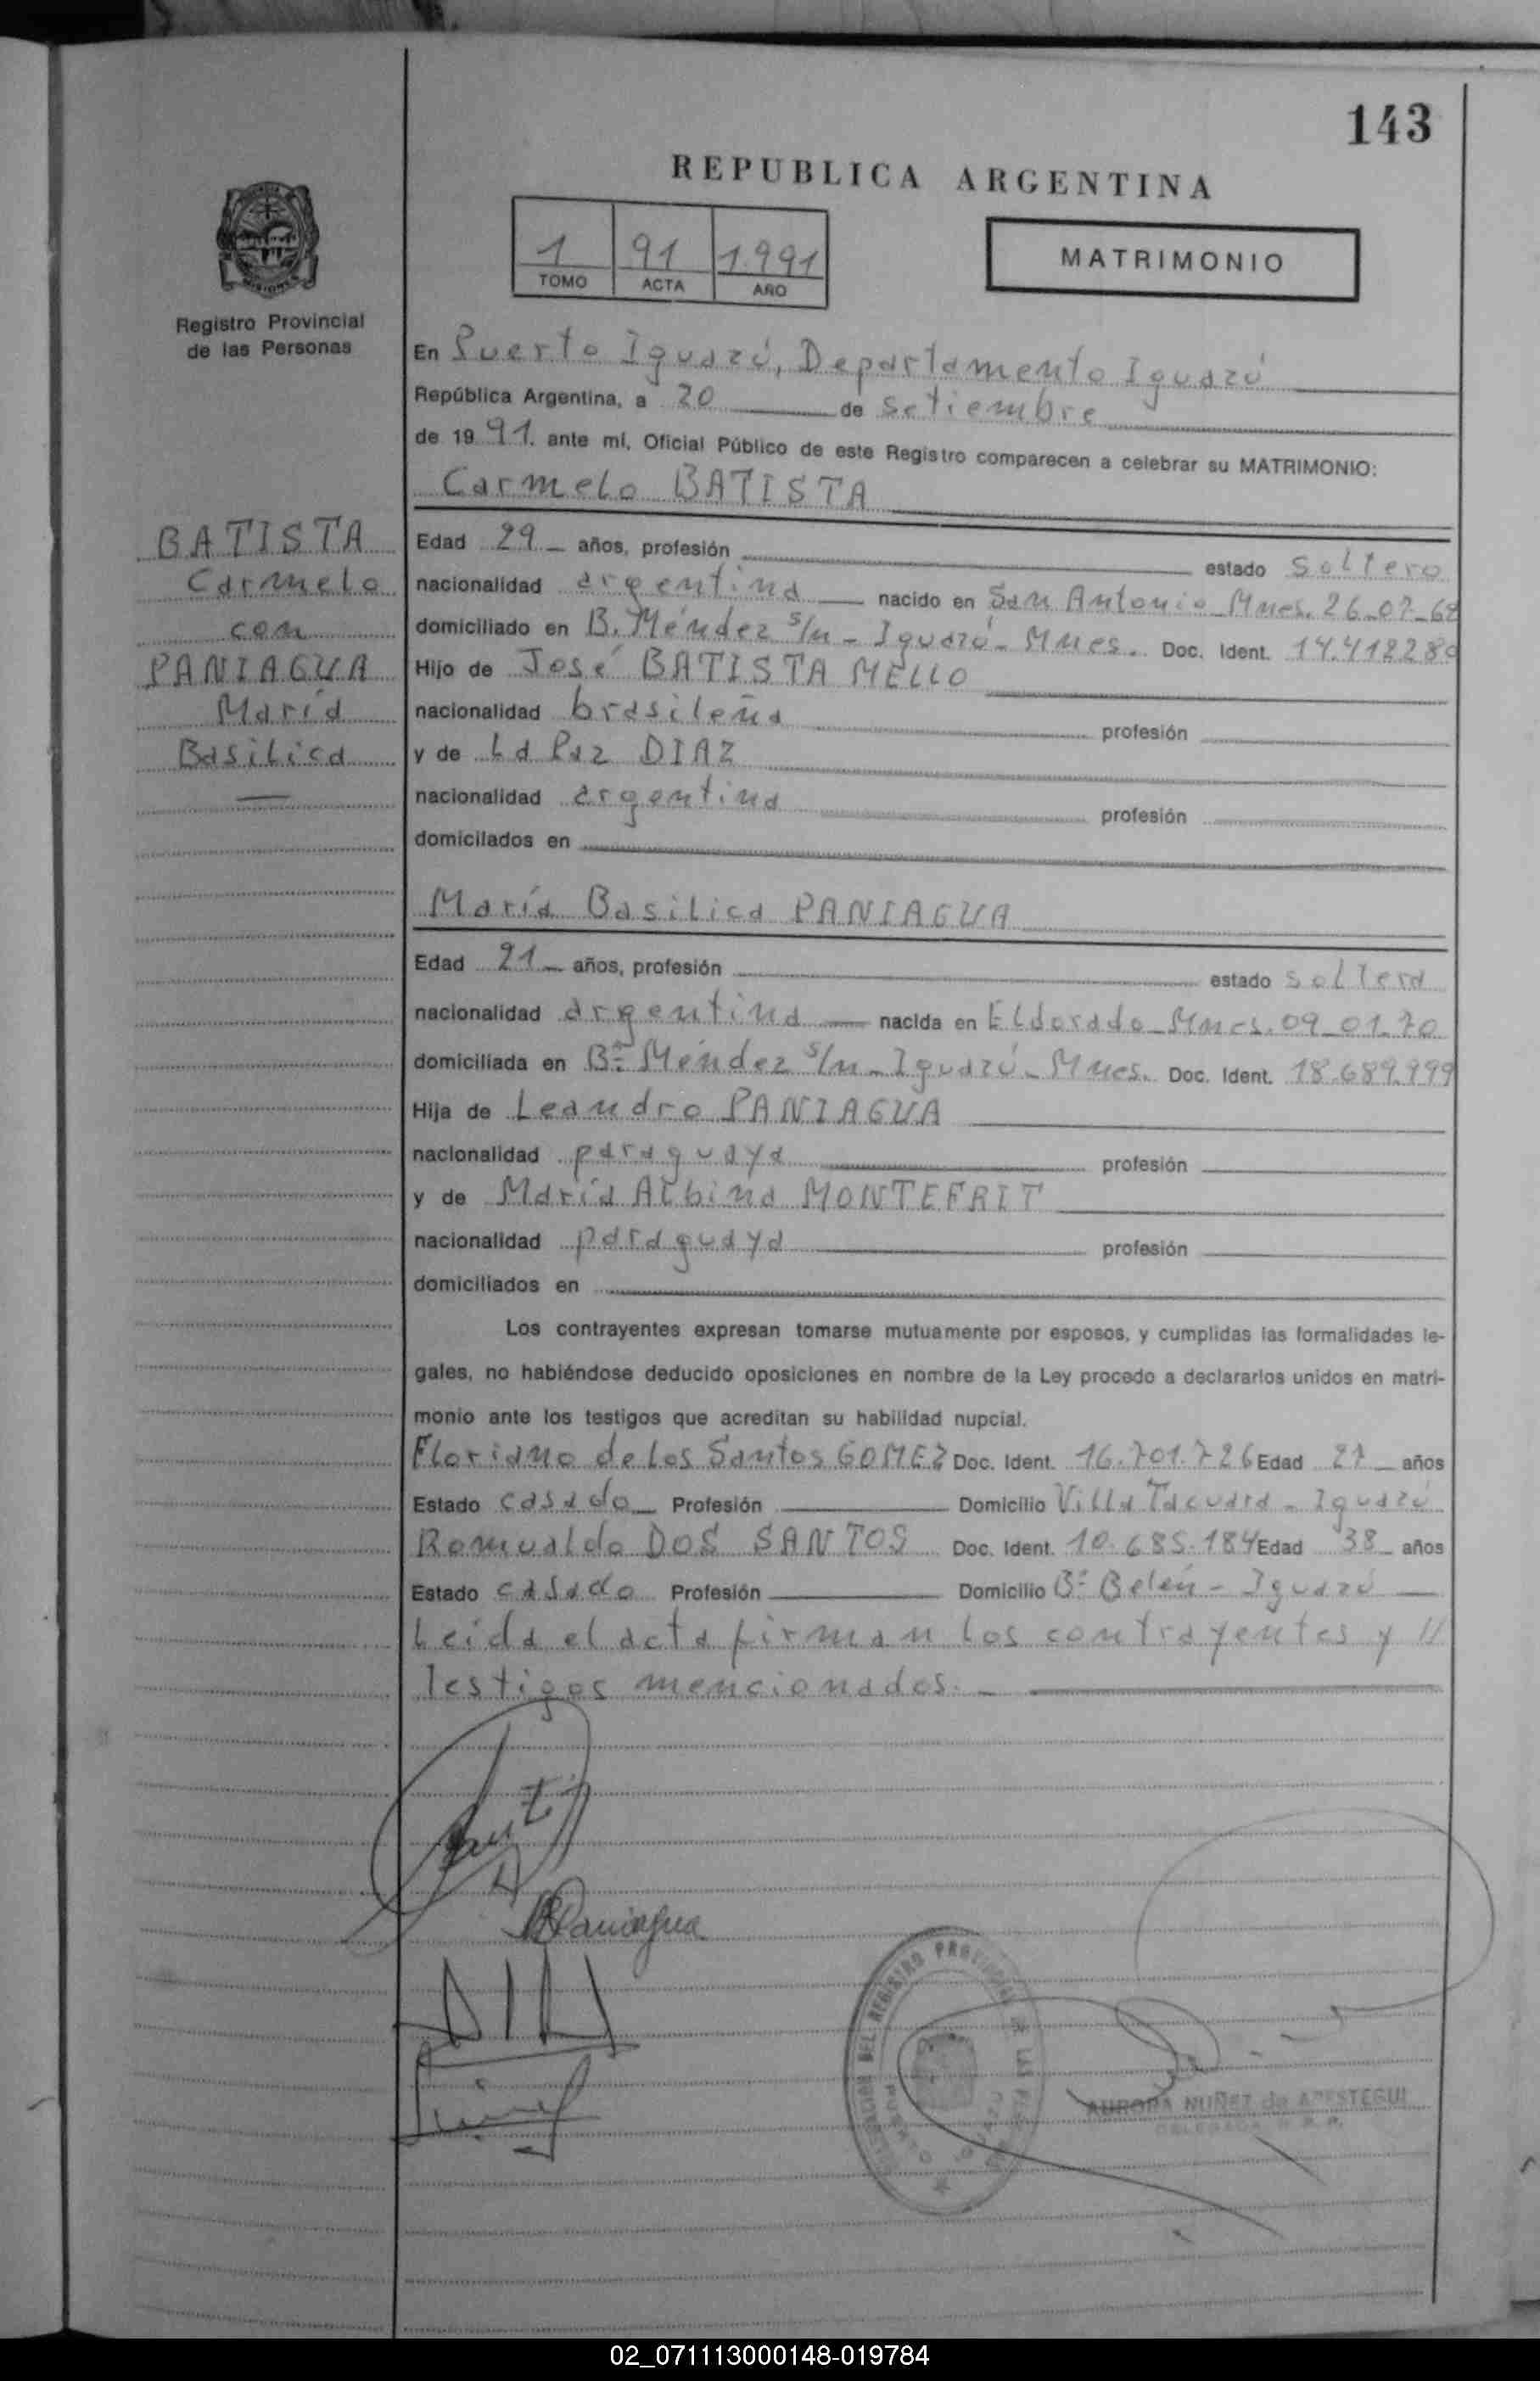 143
REPUBLICA ARGENTINA
1 91 1.991
TOMO ACTA AÑO
MATRIMONIO
Registro Provincial
de las Personas
En Puerto Iguazú, Departamento Iguazú
República Argentina, a 20 de setiembre
de 19 91. ante mí, Oficial Público de este Registro comparecen a celebrar su MATRIMONIO:
Carmelo BATISTA
BATISTA
Carmelo
con
PANIAGUA
María
Basilica
Edad 29 años, profesión estado soltero
nacionalidad argentina nacido en San Antonio Mnes. 26-07-62
domiciliado en B. Méndez s/n - Iguazú - Mnes. Doc. Ident. 14.412280
Hijo de José BATISTA MELLO
nacionalidad brasileña profesión
y de La Paz DIAZ
nacionalidad argentina profesión
domicilados en
María Basilica PANIAGUA
Edad 21 años, profesión estado soltera
nacionalidad argentina nacida en Eldorado - Mnes. 09-01-70
domiciliada en Bº Méndez s/n - Iguazú - Mnes. Doc. Ident. 18.689.999
Hija de Leandro PANIAGUA
nacionalidad paraguaya profesión
y de María Albina MONTEFRIT
nacionalidad paraguaya profesión
domiciliados en
Los contrayentes expresan tomarse mutuamente por esposos, y cumplidas las formalidades le-
gales, no habiéndose deducido oposiciones en nombre de la Ley procedo a declararlos unidos en matri-
monio ante los testigos que acreditan su habilidad nupcial.
Floriano de los Santos GOMEZ Doc. Ident. 16.701.726 Edad 27 años
Estado casado Profesión Domicilio Villa Tacuara - Iguazú
Romualdo DOS SANTOS Doc. Ident. 10.685.184 Edad 38 años
Estado casado Profesión Domicilio Bº Belén - Iguazú
Leída el acta firman los contrayentes y //
testigos mencionados. -
MBPaniagua
DELEGACION DEL REGISTRO PROVINCIAL DE LAS
AURORA NUÑEZ de APESTEGUI
02_071113000148-019784